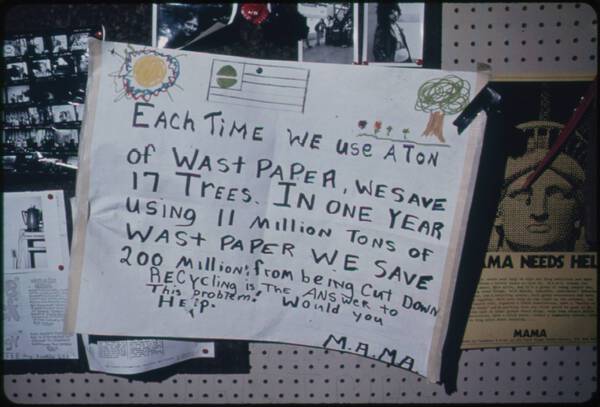 EACH TIME WE use A TON
of WASt PAPER, WE SAVE
17 TREES. IN ONE YEAR
USING 11 Million Tons of
WASt PAPER WE SAVE
200 Million! from being CUT DOWN
RECycling is The ANSWER to
This problem! Would you
HElp.
M.A.MA.
MA NEEDS HEL
MAMA